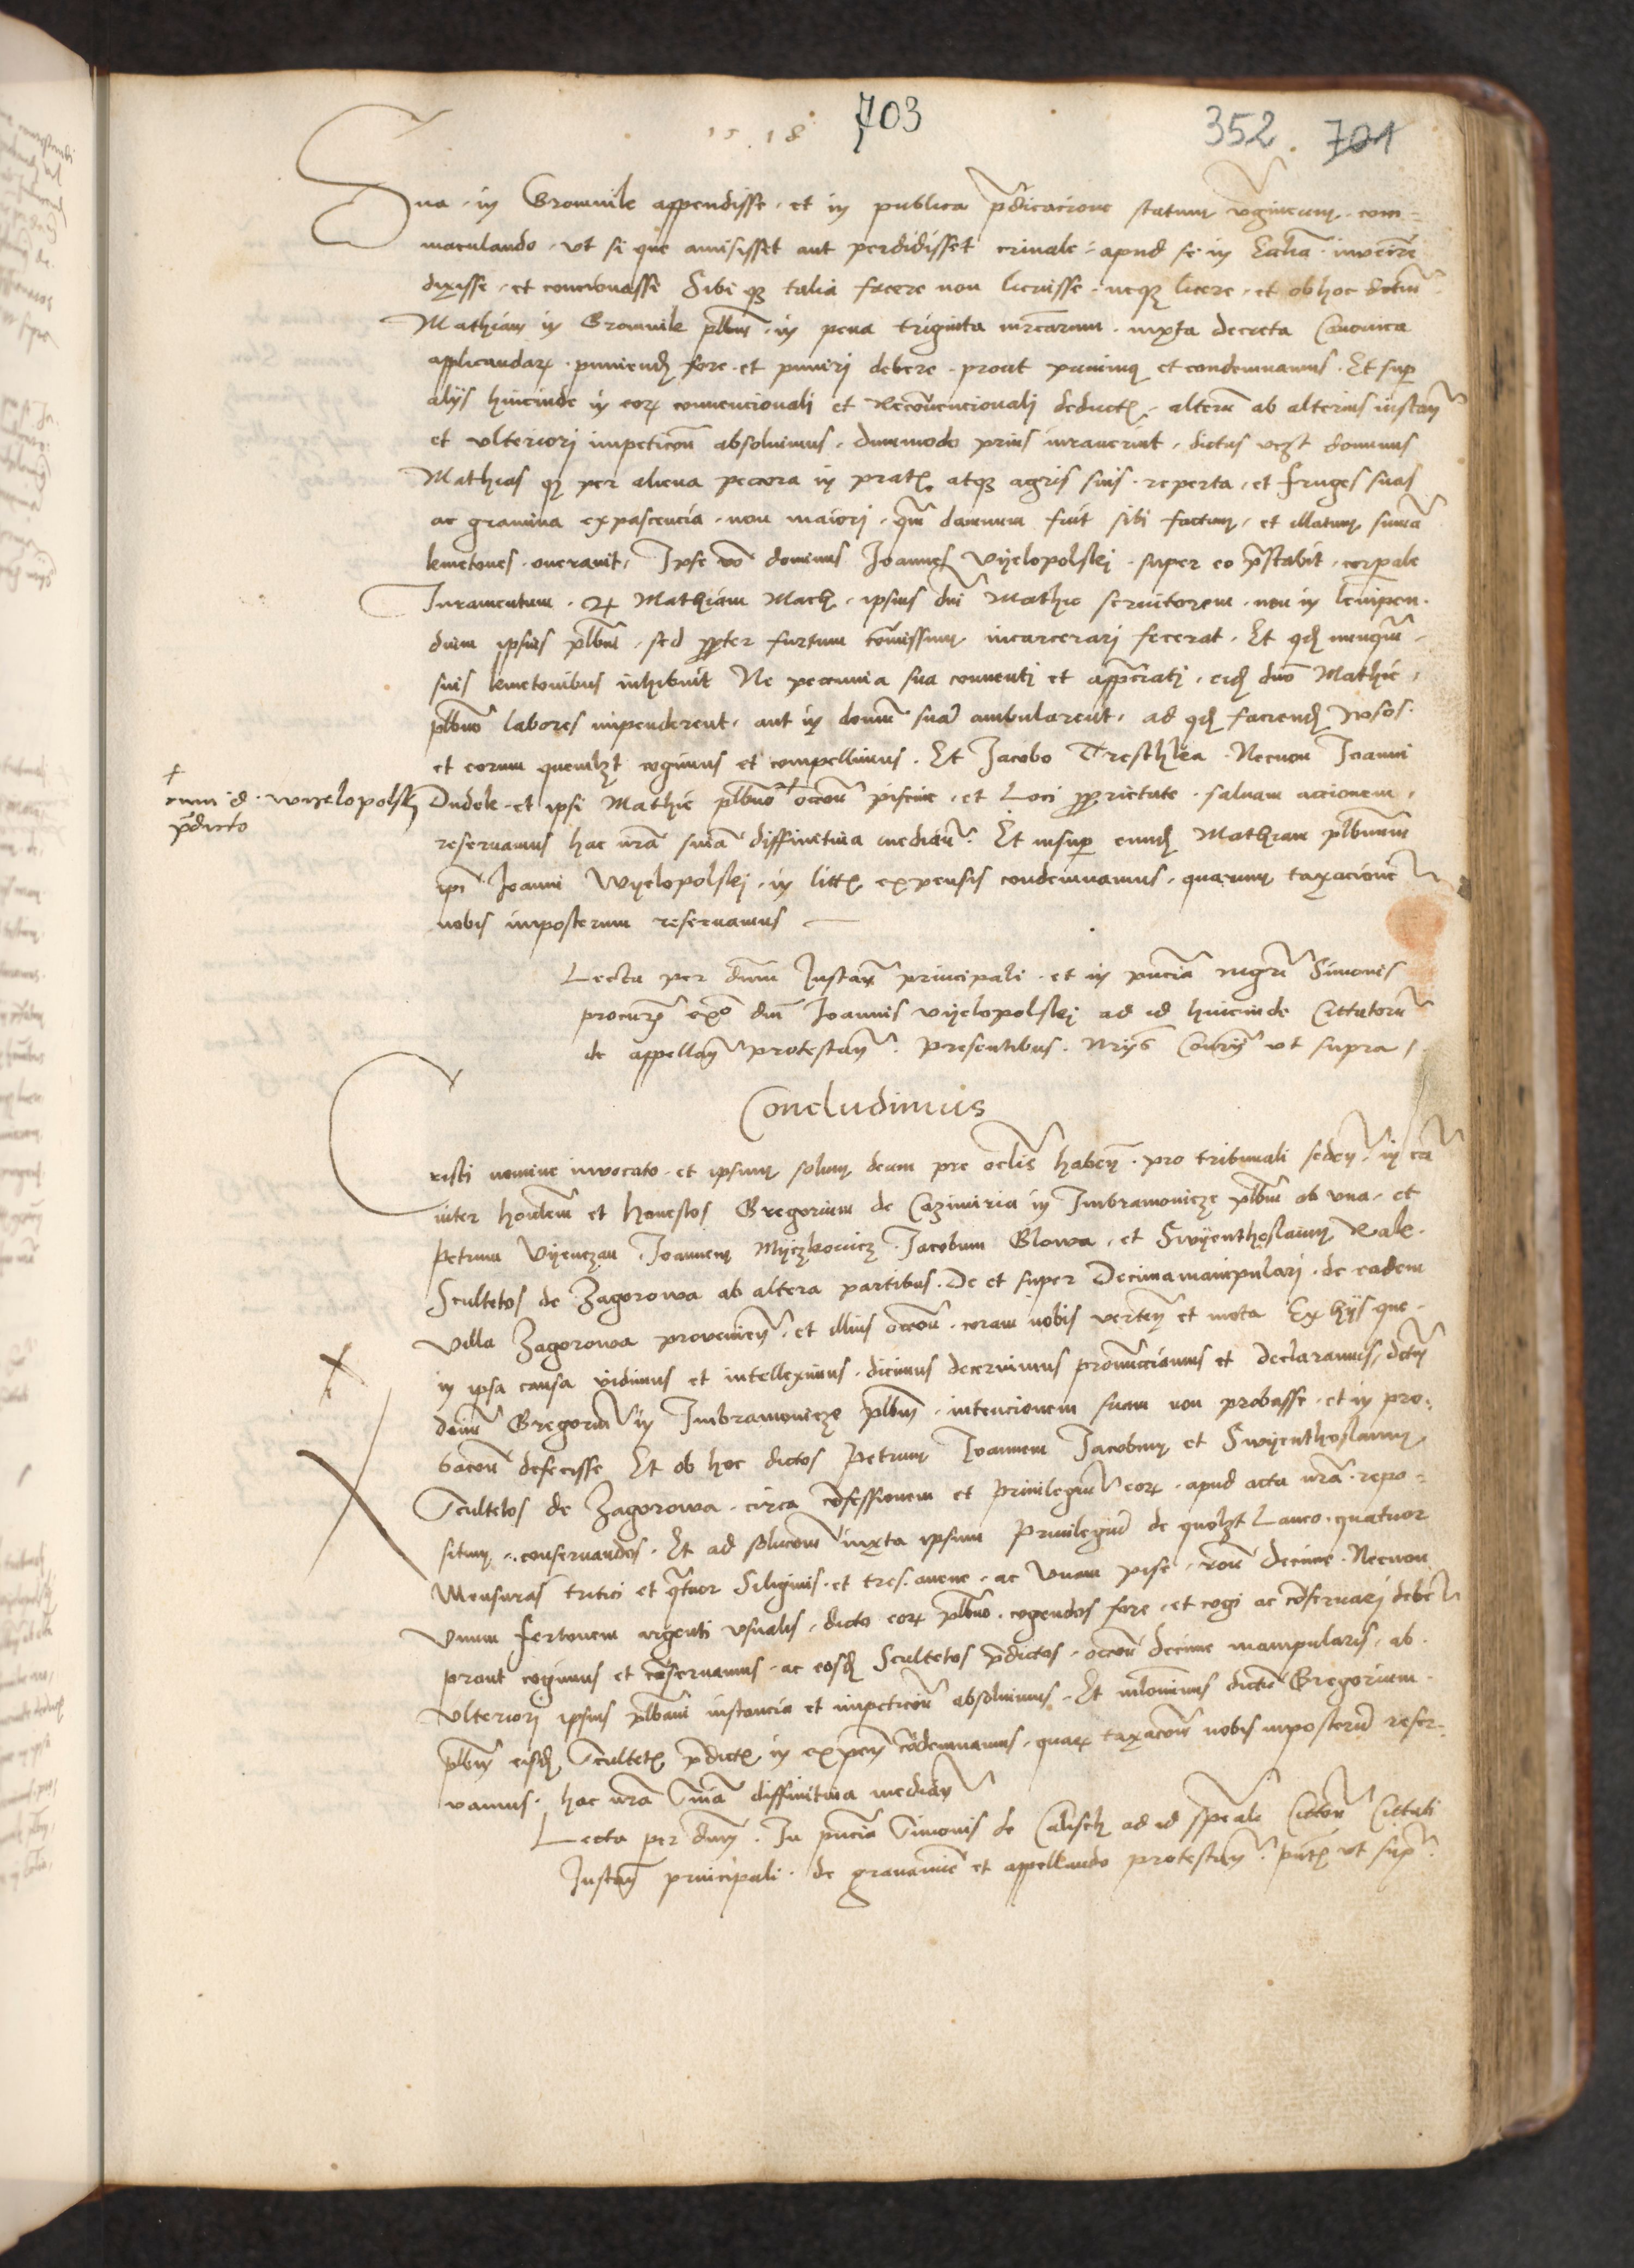 15.18 703 352. 701
Sua in Gromnik appendisse et in publica p̄dicacione statum v͛gineum com=
maculando vt si que amisisset aut perdidisset crinale apud se in Eccl̄ia inveīre
dixisse et concionasse Sibi q₃ talia facere non licuisse neq₃ licere et ob hoc dictū
Mathiam in Gromnik pl̄bm in pena triginta mr̄carum iuxta decreta Canonica
applicandaꝝ puniend̄ fore et puniri debere prout puniꝰ et condemnamus Et sup̄
alijs hincinde in eoꝝ convencionali et Reco͞uencionali deduct̄ alterū ab alterius instan̄
et vlteriori impeticoē absoluimus dummodo prius iurauerint dictus vcz̄t dominus
Mathias q₃ per aliena pecora in prat̄ atq₃ agris suis reperta et fruges suas
ac gramina expascencia non maiori qm̄ damnum fuit sibi factum et illatum sum̄a
kmetones onerauit Ipse v͞o dominus Joannes vyelopolskj super eo p̄stabit corporale
Juramentum Mathiam Mach ipsius dn̄i Mathie seruitorem non in levipen
dium ipsius pl̄bni sed ꝓpter furtum co͞missum incarcerari fecerat Et qd̄ nunqm̄
suis kmetonibus inhibuit Ne pecunia sua conuenti et app̄ciati eid̄ dn̄o Mathie
pl̄bno labores impenderent aut in domū suā ambularent ad qd̄ faciend̄ ipsos
et eorum quemlz̄t cogimus et compellimus Et Jacobo Treschka Necnon Joanni
† cum d. wyelopolskj p̄dicto
Dudek et ipsi Mathie pl̄bno † occoē piscine et Loci ꝓprietate saluam accionem
reseruamus hac nr̄a sn̄ia diffinitiua median̄ Et insup̄ eund̄ Mathiam pl̄bnum
ip̄i Joanni Wyelopolskj in litt̄ expensis condemnamus quarum taxacionē
nobis imposterum reseruamus
Lecta per dn̄m Instan̄ principali et in pn̄cia mgr̄i Simonis
procur̄ dn̄i Joannis vyelopolskj ad id hincinde Cittatorū
de appellan̄ protestan̄ presentibus Nrijs Co͞nrijs vt supra
Concludimus
Cristi nomine invocato et ipsum solum deum pre oc̄lis haben̄ pro tribunali seden̄ in cā
inter ho͞ndlem et honestos Gregorium de Cazimiria in Imbramowicze pl̄bm ab vna et
Petrum Vyenczan Joannem Myczkowicz Jacobum Glowa et Swyenthoslaum Rak
Scultetos de Zagorowa ab altera partibus De et super Decima manipulari de eadem
Villa Zagorowa provenien̄ et illius occoē coram nobis verten̄ et mota Ex hijs que
in ipsa causa vidimus et intelleximus dicimus decernimus pronunciamus et declaramus dictū
dn̄m Gregoriū in Imbramowicze pl̄bm intencionem suam non probasse et in pro=
bacoē defecisse Et ob hoc dictos Petrum Joannem Jacobum et Swyenthoslaum
Scultetos de Zagorowa circa co͞fessionem et Priuilegiū eoꝝ apud acta nr̄a repo=
situm conseruandos Et ad solucoē iuxta ipsum Priuilegiū de quolz̄t Laneo quatuor
Mensuras tritici et q̄tuor Siliginis et tres auene ac Vnam pise ro͞ne Decime Necnon
Vnum fertonem argenti vsualis dicto eoꝝ pl̄bno cogendos fore et cogi ac co͞seruari debē
prout cogimus et co͞seruamus ac eosd̄ Scultetos p̄dictos occoē decime manipularis ab
vlteriori ipsius pl̄bani instancia et impeticoē absoluimus Et nl̄ominus dictū Gregorium
pl̄bm eisd̄ Scultet̄ p̄dict̄ in expen̄ co͞demnamus quaꝝ taxacoē nobis imposterū reser=
vamus hac nr̄a Sn̄ia diffinitiua median̄
Lecta per dn̄m In pn̄cia Simonis de Calisch ad id sp̄eale Cittū Cittati
Instan̄ principali de gravamine et appellando protestan̄ pn̄t̄ vt sup̄